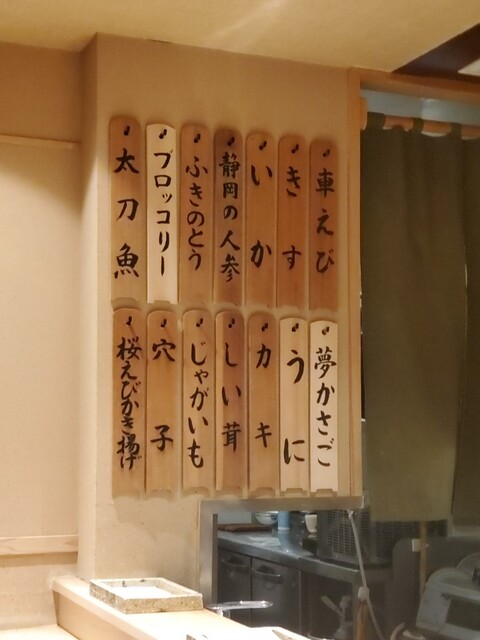 車えび
きす
いか
静岡の人参
ふきのとう
ブロッコリー
太刀魚
夢かさご
うに
カキ
しい茸
じゃがいも
穴子
桜えびかき揚げ